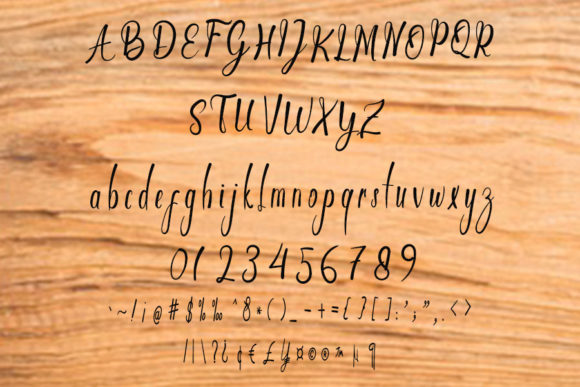 ABCDEFGHIJKLMNOPQR
STUVWXYZ
abcdefghijklmnopqrstuvwxyz
0123456789
`~!¡@#$%‰^&*()_-+={}[]:';",.<>
/|\?¿¢€£¥¤©®™µ¶